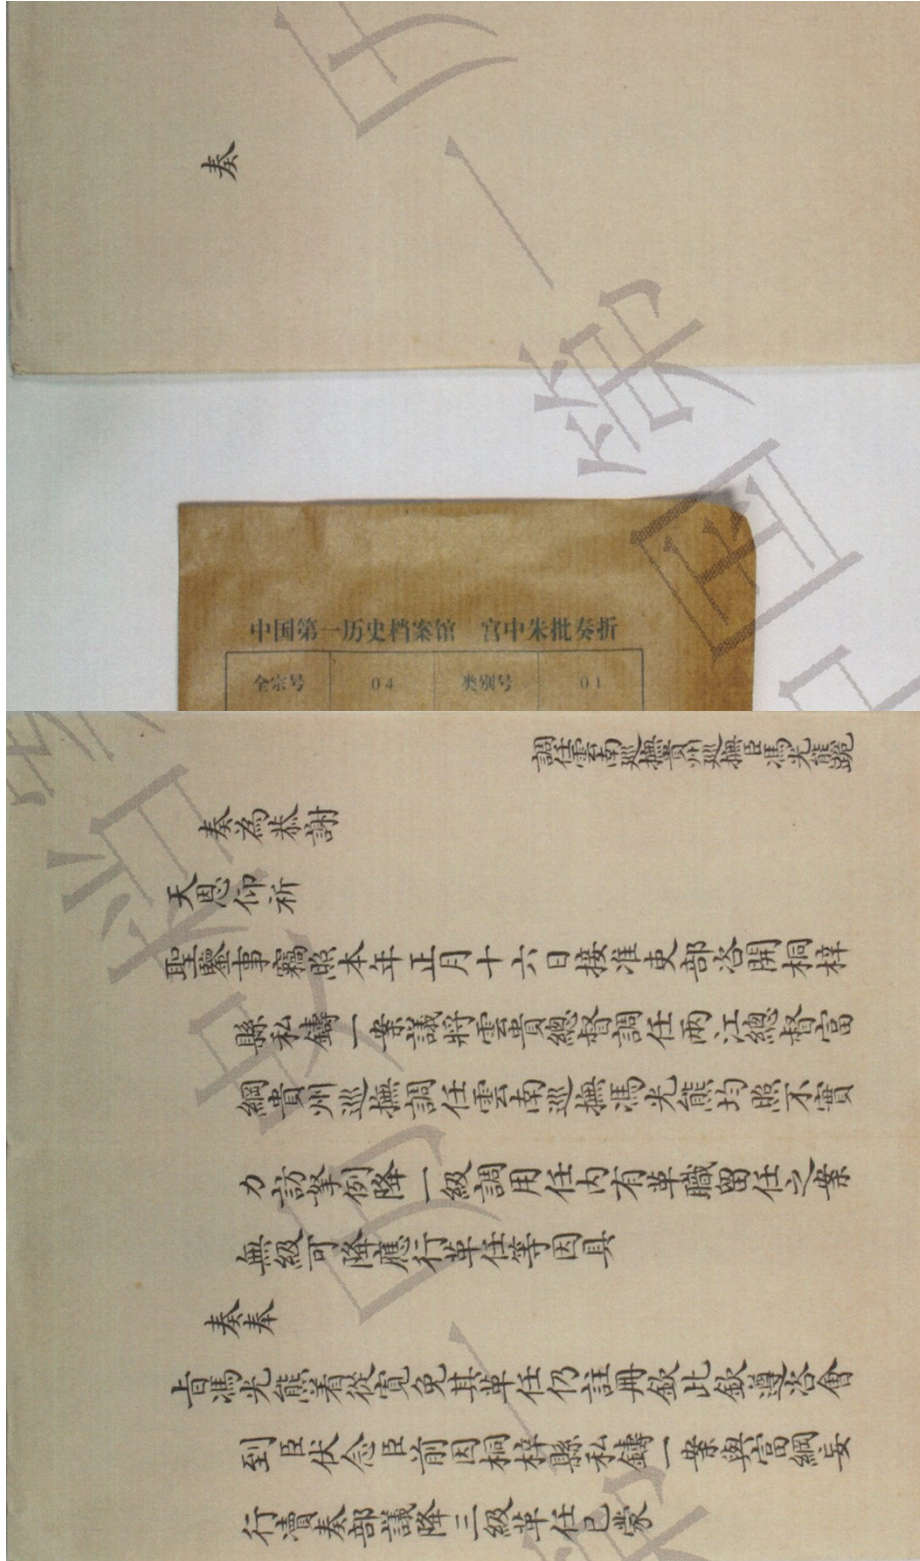 奏
中国第一历史档案馆 宫中朱批奏折
全宗号 04 类别号 01
調任雲南巡撫貴州巡撫臣馮光熊跪
奏為恭謝
天恩仰祈
聖鑒事竊照本年正月十六日接准吏部咨開桐梓
縣私鑄一案議將雲貴總督調任两江總督富
綱貴州巡撫調任雲南巡撫馮光熊均照不實
力訪拏例降一級調用任内有革職留任之案
無級可降應行革任等因具
奏奉
旨馮光熊着從寬免其革任仍註冊欽此欽遵咨會
到臣伏念臣前因桐梓縣私鑄一案與富綱妄
行瀆奏部議降三級革任已蒙